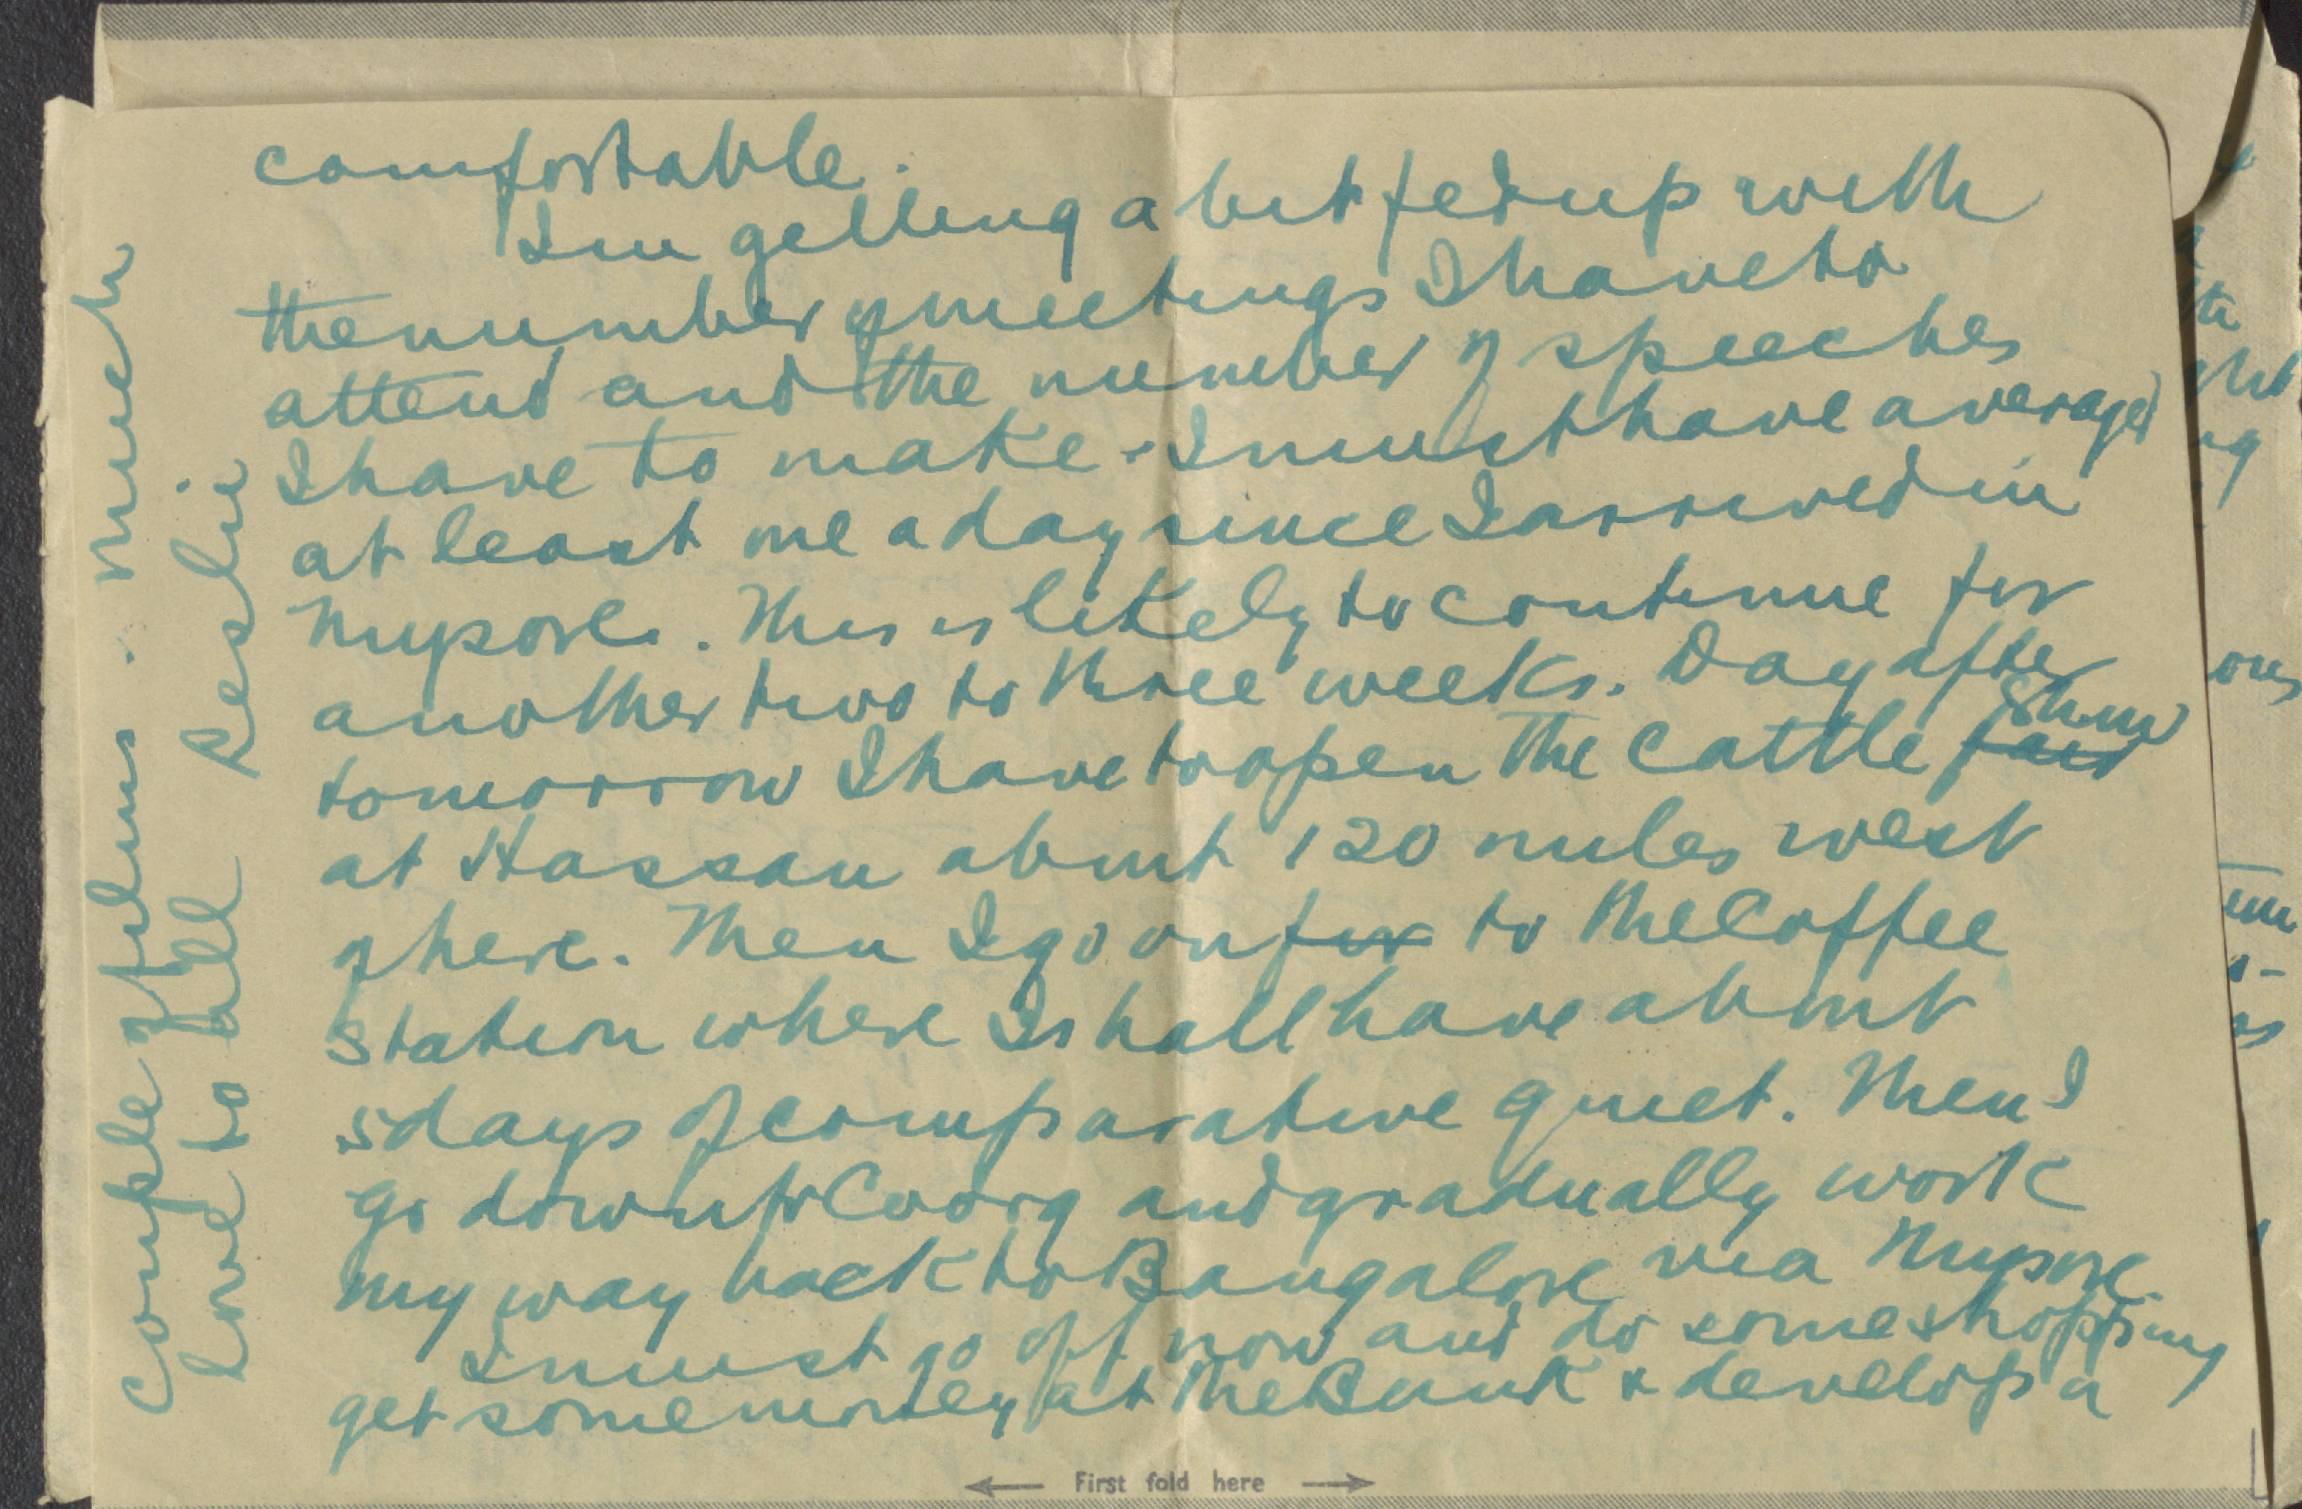 comfortable.
I'm getting a bit fed up with
the number of meetings I have to
attend and the number of speeches
I have to make. I must have averaged
at least one a day since I arrived in
Mysore. This is likely to continue for
another two to three weeks. Day after
tomorrow I have to open the Cattle fair Show
at Hassan about 120 miles west
of here. Then I go on for to the Coffee
Station where I shall have about
5 days of comparative quiet. Then I
go down to Coorg and gradually work
my way back to Bangalore via Mysore.
I must go off now and do some shopping
get some money at the Bank & develop a
couple of films. Much
love to all Leslie
First fold here